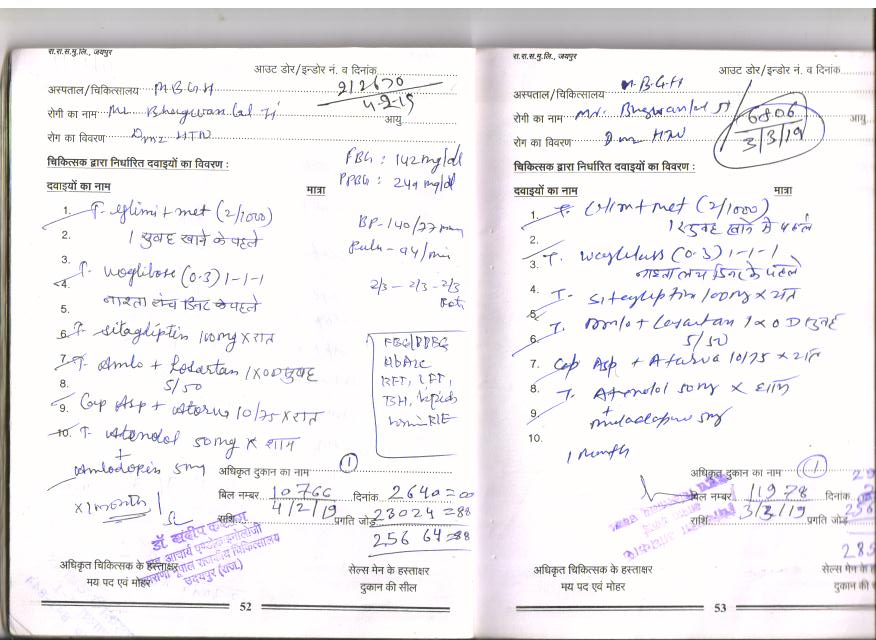 रा.रा.स.मु.लि., जयपुर
आउट डोर/इन्डोर नं. व दिनांक
212670
4-2-19
अस्पताल/चिकित्सालय M.B.G.H
रोगी का नाम Mr. Bhagwan lal Ji आयु
रोग का विवरण Dm2 HTN
चिकित्सक द्वारा निर्धारित दवाइयों का विवरण :
FBG : 142 mg/dl
PPBG : 249 mg/dl
दवाइयों का नाम मात्रा
1. T. Glimi + met (2/1000)
2. 1 सुबह खाने के पहले
BP - 140/77
3.
4. T. Voglibose (0.3) 1-1-1
2/3 - 2/3 - 2/3
5. नाश्ता लंच डिनर के पहले
6. T. Sitagliptin 100mg x रात
FBG/PPBG
HbA1c
RFT, LFT,
TSH, lipids
7. T. Amlo + Losartan 1 x OD सुबह
8. 5/50
9. Cap Asp + Atorva 10/75 x रात
10. T. Atenolol 50mg x शाम
+
Amlodopin 5mg
x 1 month
1
अधिकृत दुकान का नाम
बिल नम्बर 10766 दिनांक 2640=00
राशि 4/2/19 प्रगति जोड़ 23024=88
25664=88
डॉ.
उदयपुर (राज.)
अधिकृत चिकित्सक के हस्ताक्षर
मय पद एवं मोहर
सेल्स मेन के हस्ताक्षर
दुकान की सील
52
रा.रा.स.मु.लि., जयपुर
आउट डोर/इन्डोर नं. व दिनांक
अस्पताल/चिकित्सालय M.B.G.H
6806
3/3/19
रोगी का नाम Mr. Bhagwan lal Ji आयु
रोग का विवरण Dm HTN
चिकित्सक द्वारा निर्धारित दवाइयों का विवरण :
दवाइयों का नाम मात्रा
1. T. Glim + met (2/1000)
1 सुबह खाने से पहले
2.
3. T. (0.3) 1-1-1
नाश्ता लंच डिनर के पहले
4. T. Sitagliptin 100mg x रात
5.
6. T. Amlo + Losartan 1 x OD सुबह
5/50
7. Cap Asp + Atorva 10/75 x रात
8. T. Atenolol 50mg x शाम
+
9. 5mg
10.
1 Month
अधिकृत दुकान का नाम 1
बिल नम्बर 11978 दिनांक
राशि 3/3/19 प्रगति जोड़
अधिकृत चिकित्सक के हस्ताक्षर
मय पद एवं मोहर
सेल्स मेन के
दुकान की
53